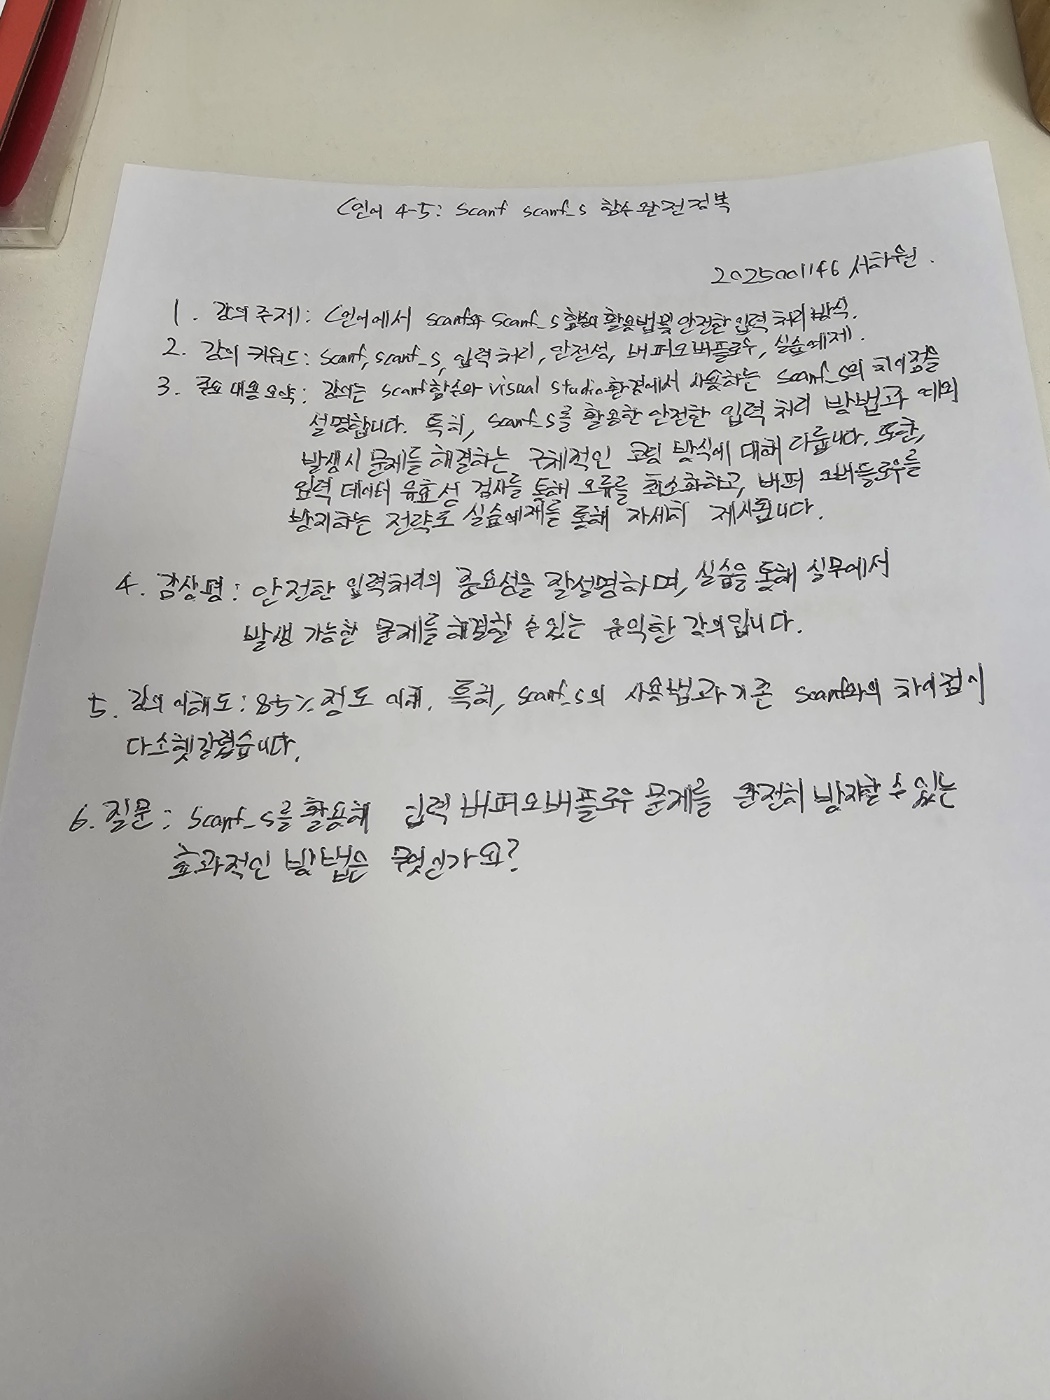 C언어 4-5: scanf scanf_s 함수완전정복
2025001146 서하원.
1. 강의 주제: C언어에서 scanf와 scanf_s 함수의 활용법 및 안전한 입력 처리 방식.
2. 강의 키워드: scanf, scanf_s, 입력 처리, 안전성, 버퍼오버플로우, 실습예제.
3. 주요 내용 요약: 강의는 scanf함수와 visual studio환경에서 사용하는 scanf_s의 차이점을
설명합니다. 특히, scanf_s를 활용한 안전한 입력 처리 방법과 예외
발생시 문제를 해결하는 구체적인 코딩 방식에 대해 다룹니다. 또한,
입력 데이터 유효성 검사를 통해 오류를 최소화하고, 버퍼 오버플로우를
방지하는 전략도 실습예제를 통해 자세히 제시됩니다.
4. 감상평: 안전한 입력처리의 중요성을 잘설명하며, 실습을 통해 실무에서
발생 가능한 문제를 해결할 수 있는 유익한 강의입니다.
5. 강의 이해도: 85% 정도 이해. 특히, scanf_s의 사용법과 기존 scanf와의 차이점이
다소헷갈렸습니다.
6. 질문: scanf_s를 활용해 입력 버퍼오버플로우 문제를 완전히 방지할 수 있는
효과적인 방법은 무엇인가요?